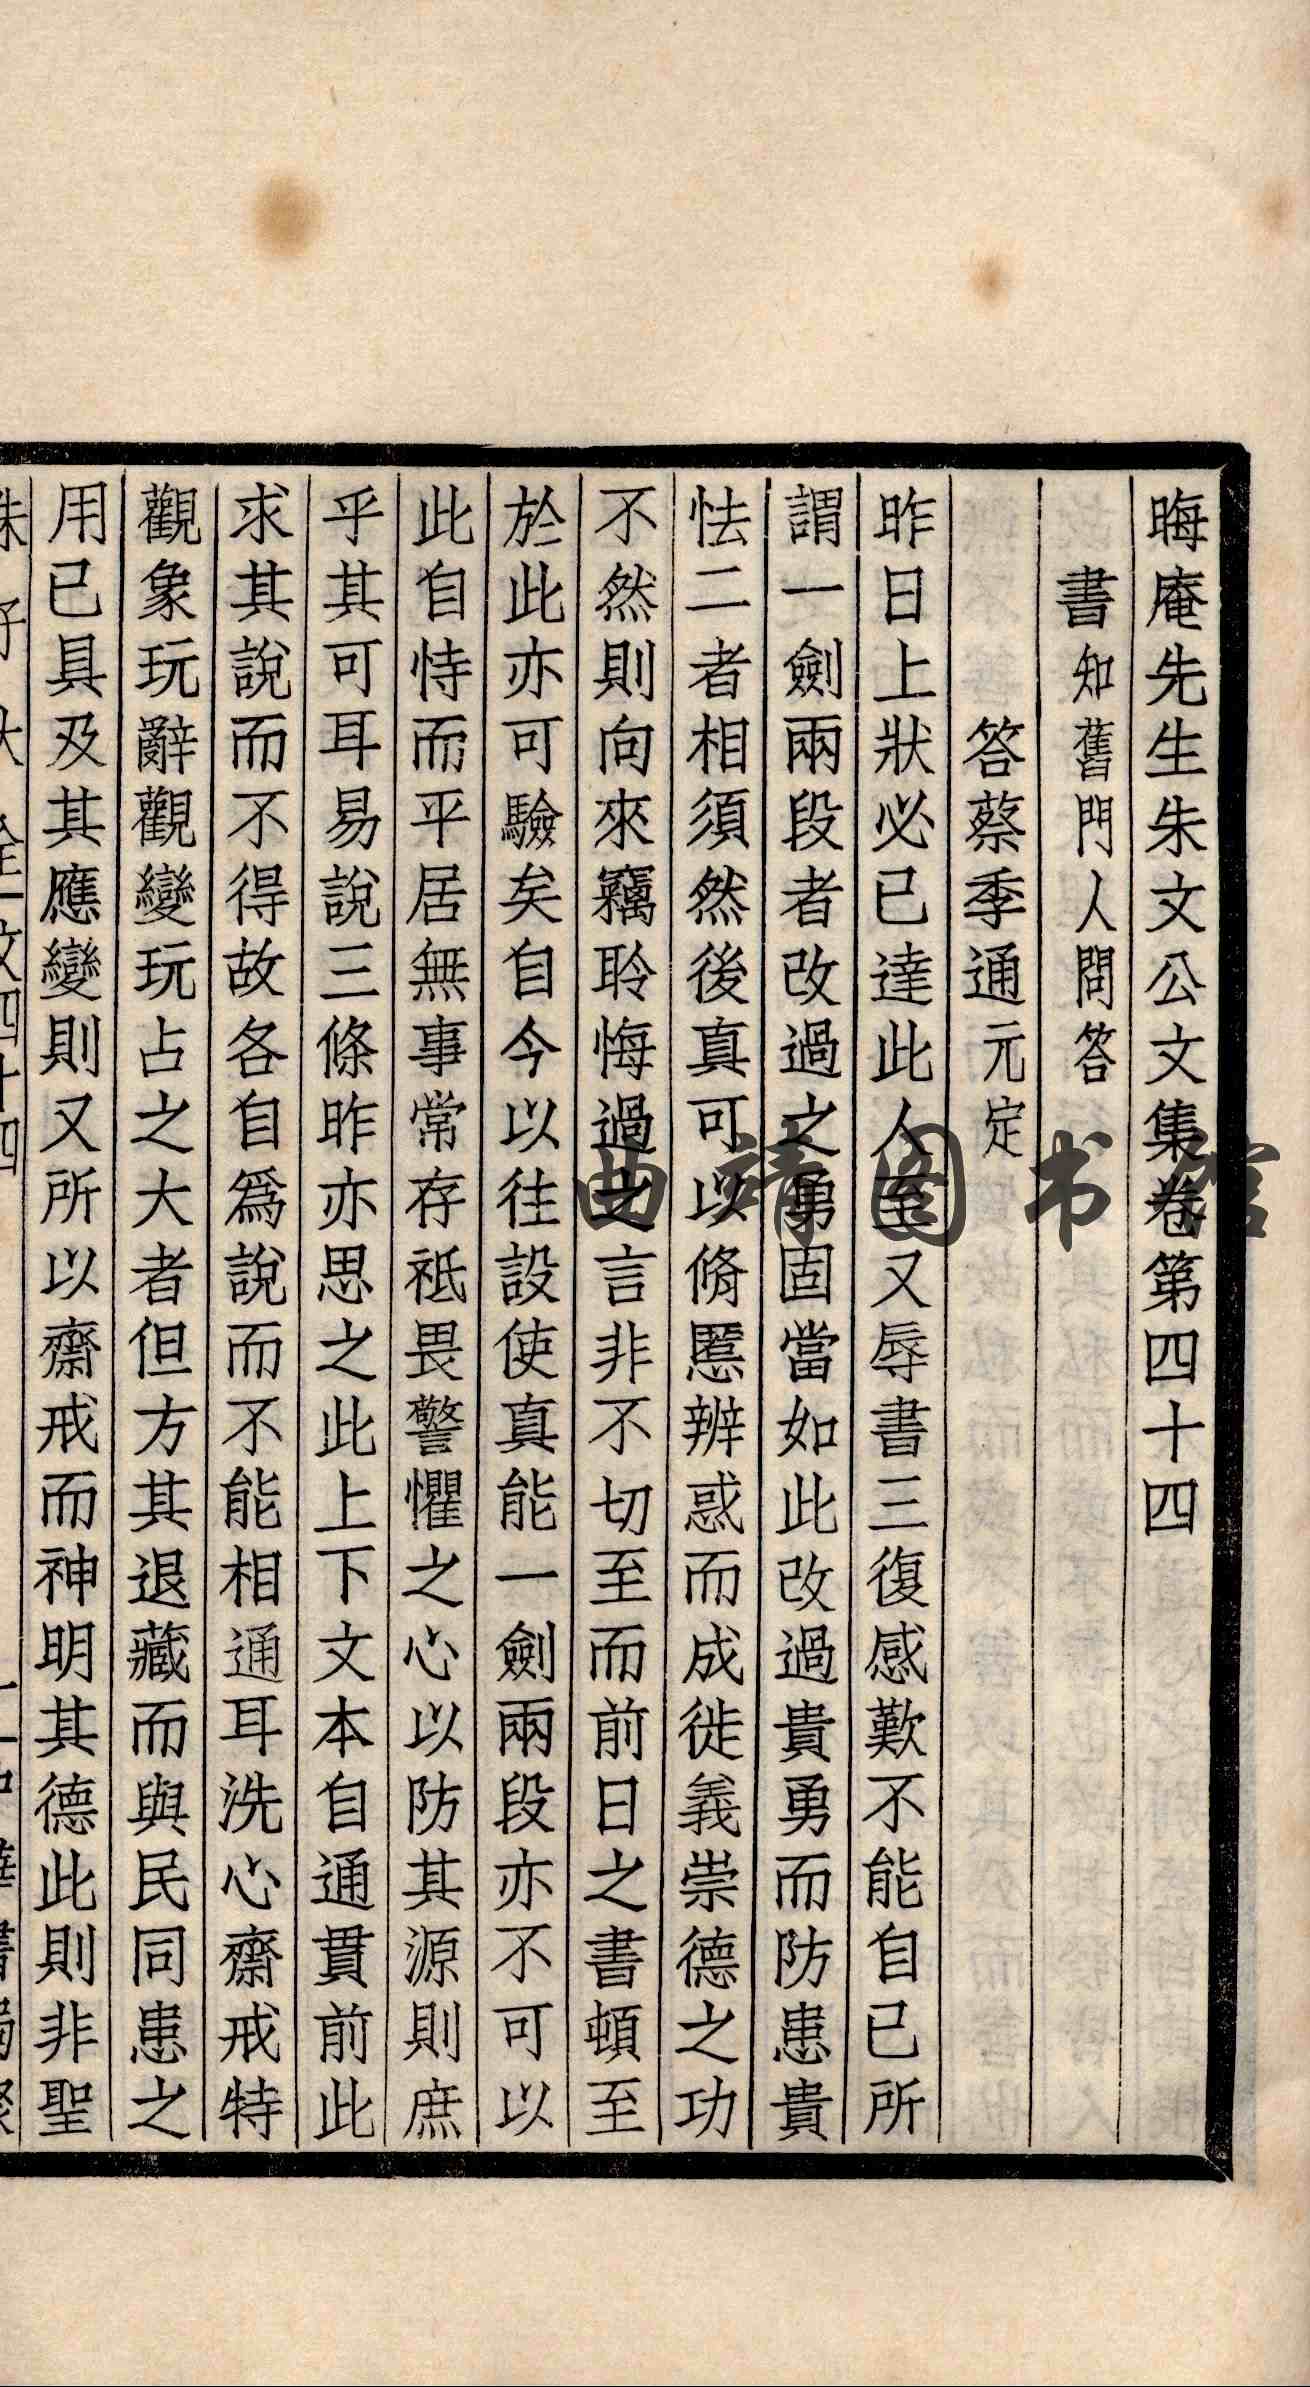 晦庵先生朱文公文集卷第四十四
書知舊門人問答
答蔡季通元定
昨日上狀必已達此人至又辱書三復感歎不能自已所
謂一劍兩段者改過之勇固當如此改過貴勇而防患貴
怯二者相須然後真可以脩慝辨惑而成徙義崇德之功
不然則向來竊聆悔過之言非不切至而前日之書頓至
於此亦可驗矣自今以往設使真能一劍兩段亦不可以
此自恃而平居無事常存祗畏警懼之心以防其源則庶
乎其可耳易說三條昨亦思之此上下文本自通貫前此
求其說而不得故各自爲說而不能相通耳洗心齋戒特
觀象玩辭觀變玩占之大者但方其退藏而與民同患之
用已具及其應變則又所以齋戒而神明其德此則非聖
曲靖图书馆